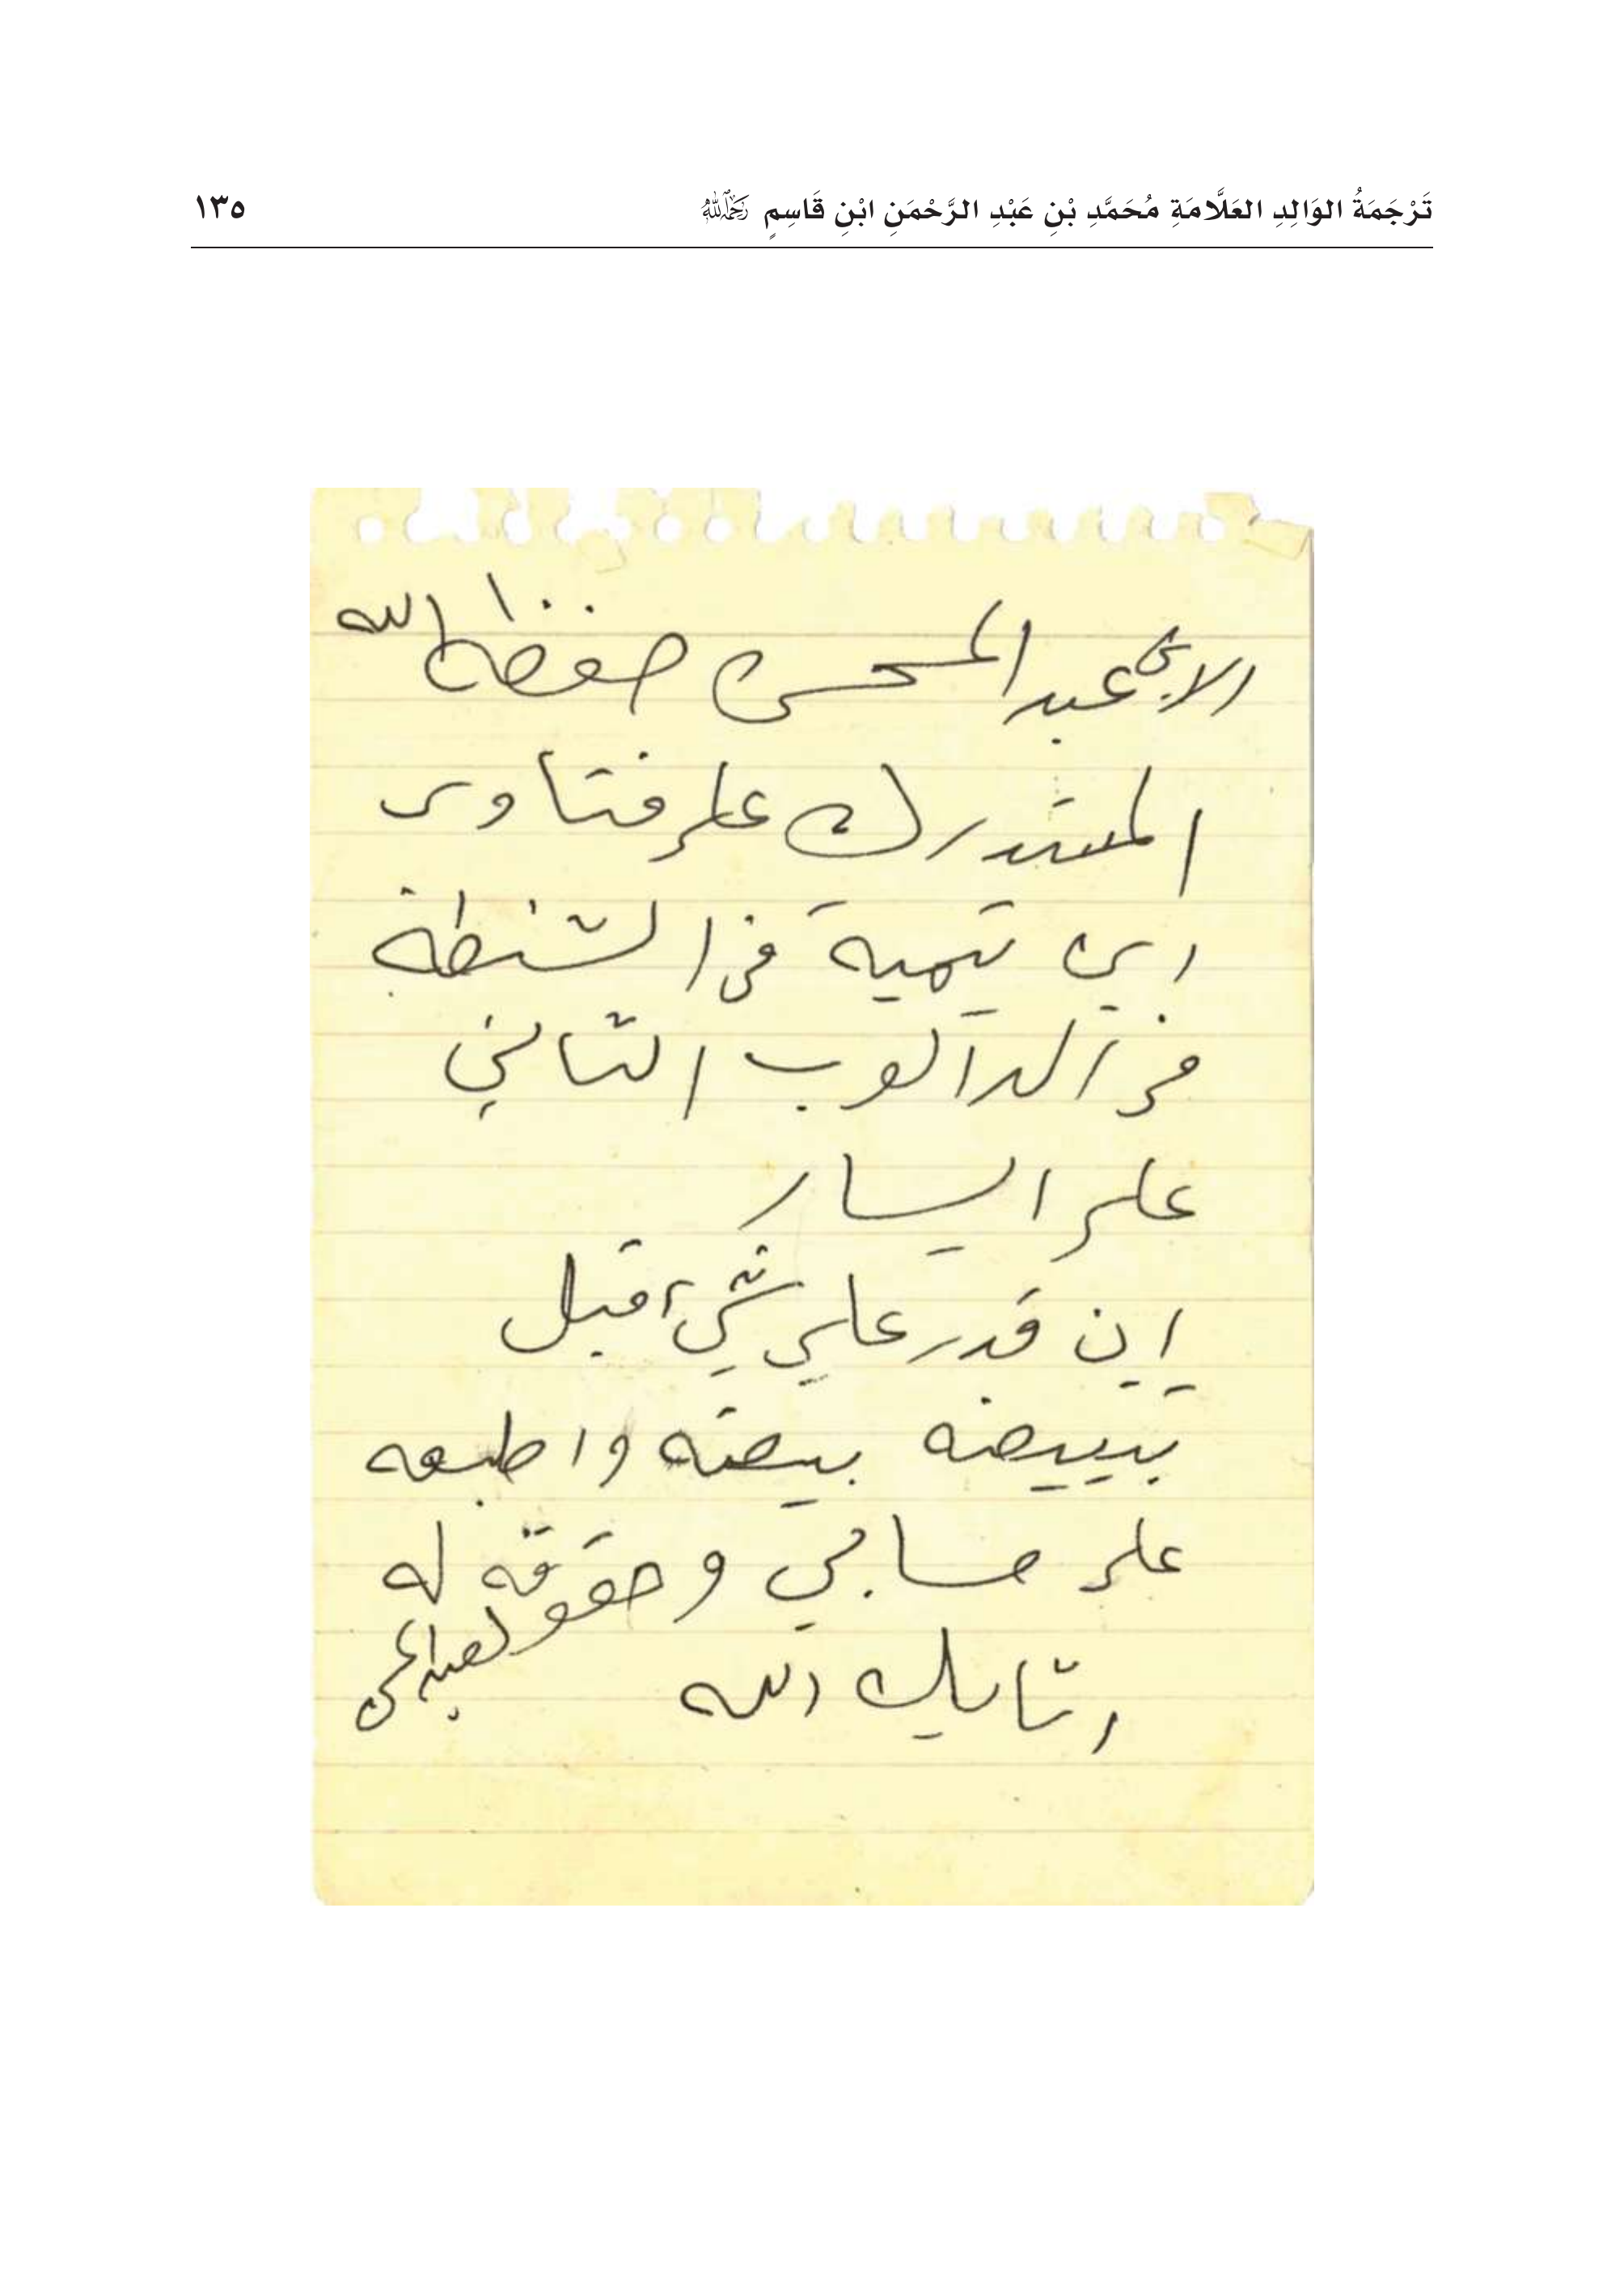 تَرْجَمَةُ الوَالِدِ العَلَّامَةِ مُحَمَّدِ بْنِ عَبْدِ الرَّحْمَنِ ابْنِ قَاسِمٍ رَحِمَهُ اللهُ ١٣٥
الابن عبد المحسن حفظه الله
المستدرك على فتاوى
ابن تيمية في الشنطة
في الدالوب الثاني
على اليسار
إن قدر علي شيء قبل
تبييضه بيضه واطبعه
على حسابي وحقوقه له
لعبد المحسن
اثابك الله